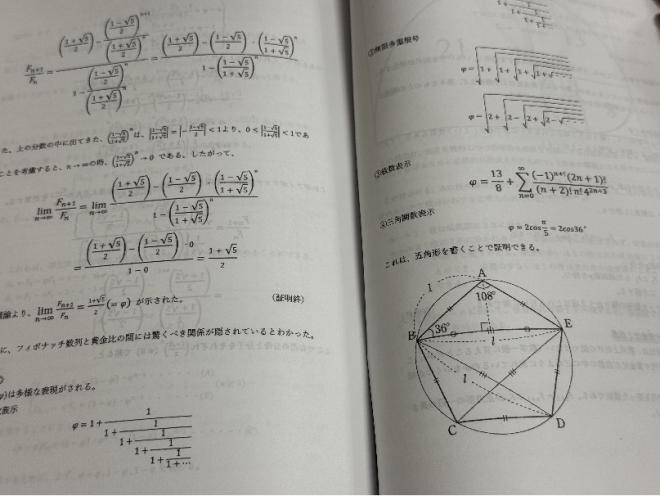 F_{n+1}/F_n = ((1+√5)/2) − ((1−√5)/2)^{n+1}/((1+√5)/2)^n / 1 − ((1−√5)/2)^n/((1+√5)/2)^n = ((1+√5)/2) − ((1−√5)/2)·((1−√5)/(1+√5))^n / 1 − ((1−√5)/(1+√5))^n
た、上の分数の中に出てきた、((1−√5)/(1+√5))^n は、|(1−√5)/(1+√5)| = |− | < 1より、0 < |(1−√5)/(1+√5)| < 1であ
ことを考慮すると、n→∞の時、((1−√5)/(1+√5))^n → 0 である。したがって、
lim_{n→∞} F_{n+1}/F_n = lim_{n→∞} ((1+√5)/2) − ((1−√5)/2)·((1−√5)/(1+√5))^n / 1 − ((1−√5)/(1+√5))^n
= ((1+√5)/2) − ((1−√5)/2)·0 / 1−0 = (1+√5)/2
論より、lim_{n→∞} F_{n+1}/F_n = (1+√5)/2 (= φ) が示された。 (証明終)
に、フィボナッチ数列と黄金比の間には驚くべき関係が隠されているとわかった。
φ)は多様な表現がされる。
表示
φ = 1+1/(1+1/(1+1/(1+1/(1+1/(1+⋯
②無限多重根号
φ = √(1+√(1+√(1+√(1+√⋯
φ = √(2+√(2−√(2+√(2−√⋯
③級数表示
φ = 13/8 + ∑_{n=0}^{∞} (−1)^{n+1}(2n+1)!/(n+2)! n! 4^{2n+3}
④三角関数表示
φ = 2cos π/5 = 2cos36°
これは、五角形を書くことで証明できる。
A
1
108°
B
36°
E
l
l
C
D